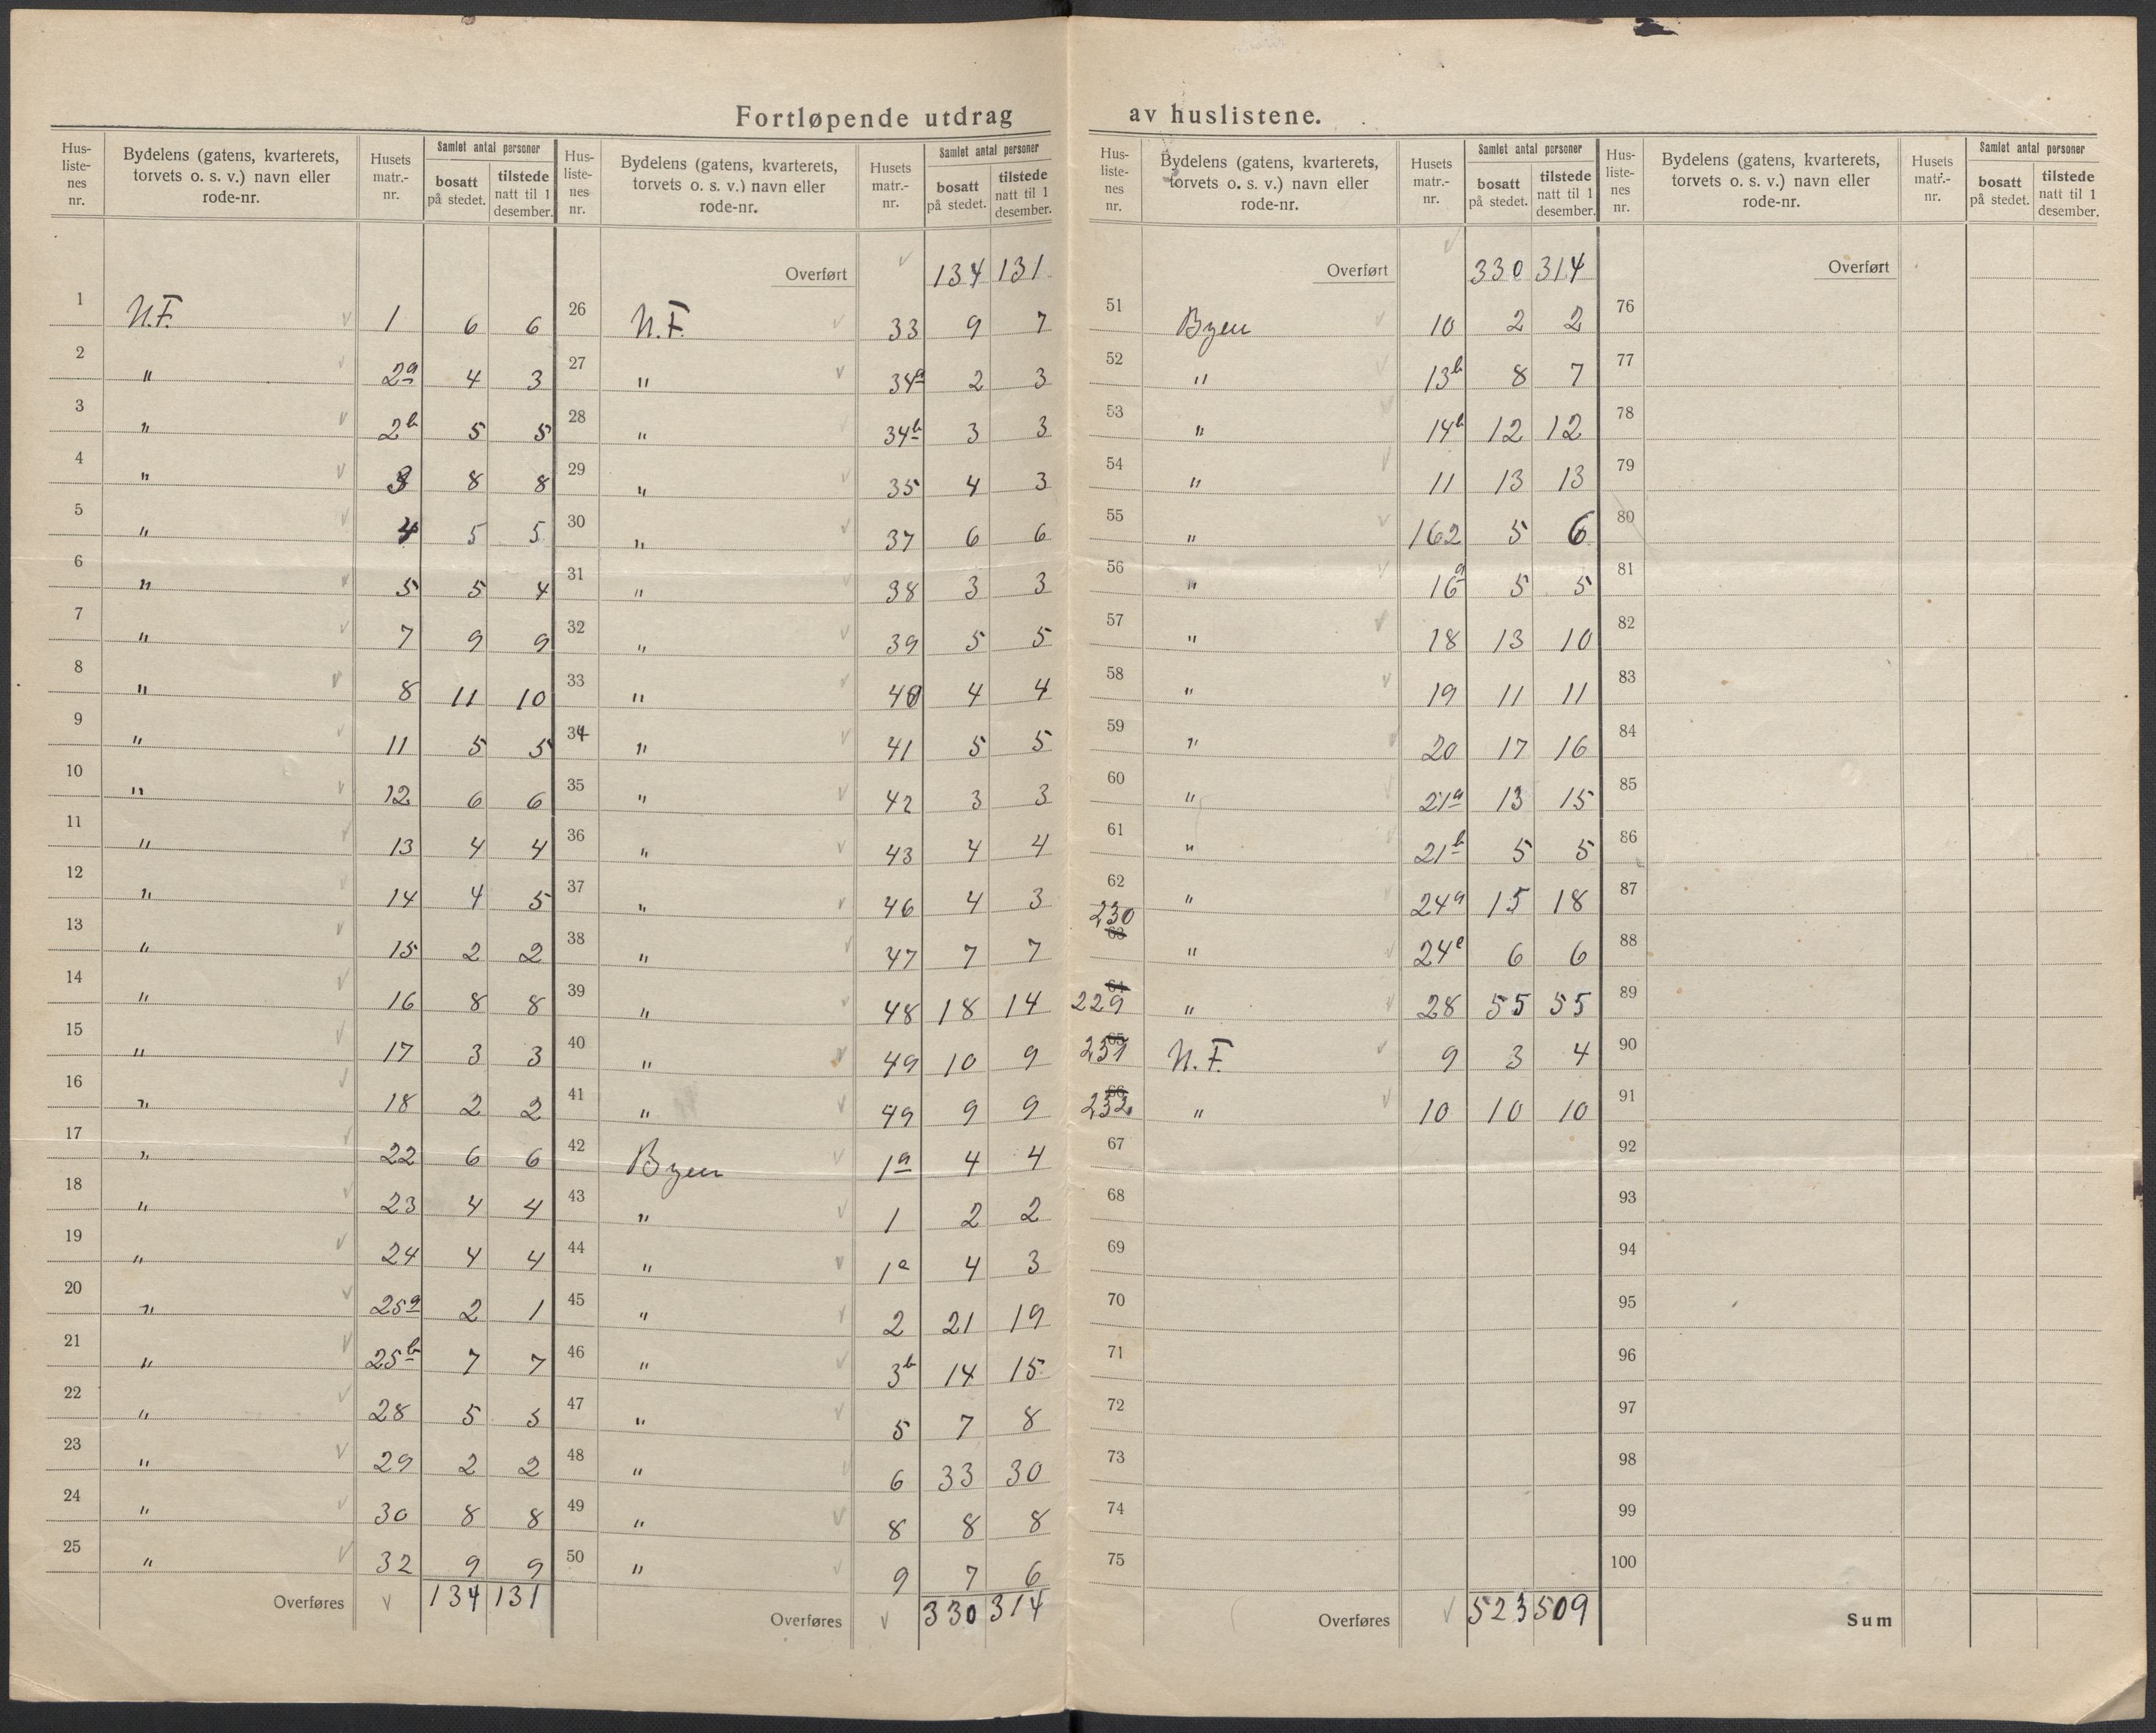 Fortløpende utdrag av huslistene.
Hus-liste-nes nr. | Bydelens (gatens, kvarterets, torvets o. s. v.) navn eller rode-nr. | Husets matr.-nr. | Samlet antal personer bosatt på stedet. | tilstede natt til 1 desember.
1 N.F. 1 6 6
2 " 2a 4 3
3 " 2b 5 5
4 " 3 8 8
5 " 4 5 5
6 " 5 5 4
7 " 7 9 9
8 " 8 11 10
9 " 11 5 5
10 " 12 6 6
11 " 13 4 4
12 " 14 4 5
13 " 15 2 2
14 " 16 8 8
15 " 17 3 3
16 " 18 2 2
17 " 22 6 6
18 " 23 4 4
19 " 24 4 4
20 " 25a 2 1
21 " 25b 7 7
22 " 28 5 5
23 " 29 2 2
24 " 30 8 8
25 " 32 9 9
Overføres 134 131
Hus-liste-nes nr. | Bydelens (gatens, kvarterets, torvets o. s. v.) navn eller rode-nr. | Husets matr.-nr. | Samlet antal personer bosatt på stedet. | tilstede natt til 1 desember.
Overført 134 131
26 N.F. 33 9 7
27 " 34a 2 3
28 " 34b 3 3
29 " 35 4 3
30 " 37 6 6
31 " 38 3 3
32 " 39 5 5
33 " 40 4 4
34 " 41 5 5
35 " 42 3 3
36 " 43 4 4
37 " 46 4 3
38 " 47 7 7
39 " 48 18 14
40 " 49 10 9
41 " 49 9 9
42 Byen 1a 4 4
43 " 1 2 2
44 " 1e 4 3
45 " 2 21 19
46 " 3b 14 15
47 " 5 7 8
48 " 6 33 30
49 " 8 8 8
50 " 9 7 6
Overføres 330 314
Hus-liste-nes nr. | Bydelens (gatens, kvarterets, torvets o. s. v.) navn eller rode-nr. | Husets matr.-nr. | Samlet antal personer bosatt på stedet. | tilstede natt til 1 desember.
Overført 330 314
51 Byen 10 2 2
52 " 13b 8 7
53 " 14b 12 12
54 " 11 13 13
55 " 162 5 6
56 " 16a 5 5
57 " 18 13 10
58 " 19 11 11
59 " 20 17 16
60 " 21a 13 15
61 " 21b 5 5
62 " 24a 15 18
63 230 " 24e 6 6
64 229 " 28 55 55
65 231 N.F. 9 3 4
66 232 " 10 10 10
67
68
69
70
71
72
73
74
75
Overføres 523 509
Hus-liste-nes nr. | Bydelens (gatens, kvarterets, torvets o. s. v.) navn eller rode-nr. | Husets matr.-nr. | Samlet antal personer bosatt på stedet. | tilstede natt til 1 desember.
Overført
76
77
78
79
80
81
82
83
84
85
86
87
88
89
90
91
92
93
94
95
96
97
98
99
100
Sum